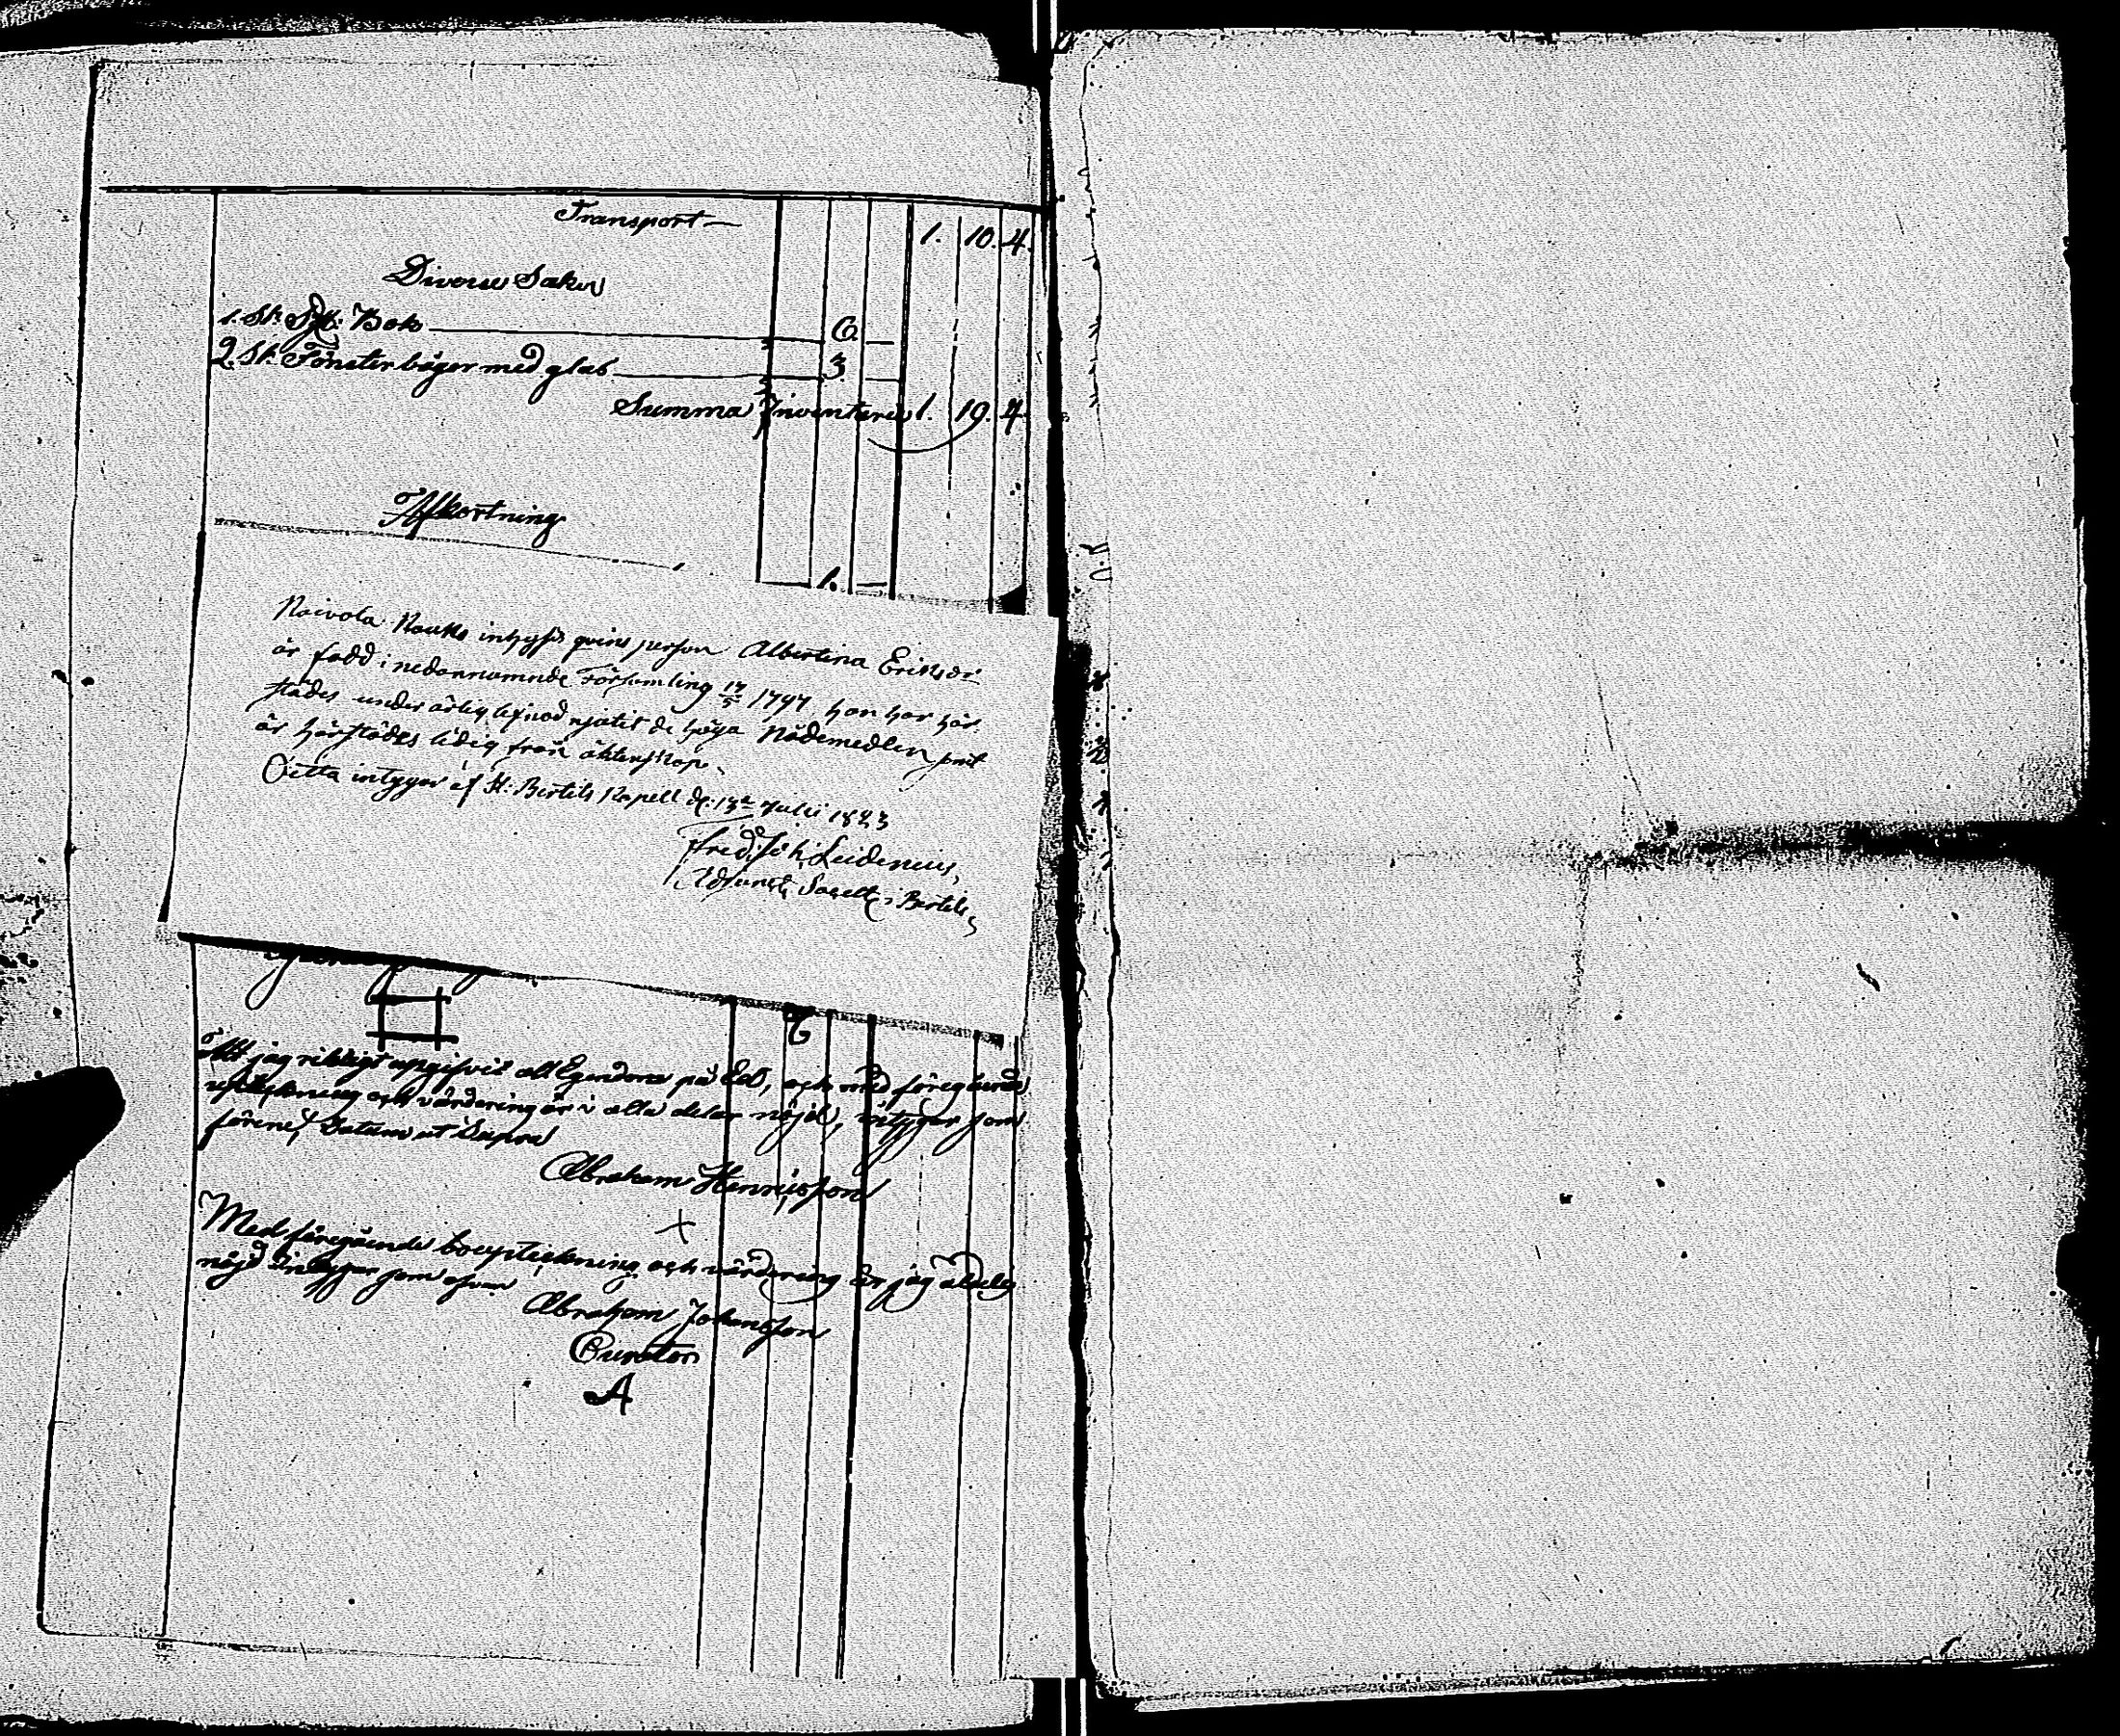 Transport — 1. 10. 4.
Diverse Saker
1. St. Bok — 6. —
2. St. Fönster bågar med glas — 3. —
Summa Inventarii 1. 19. 4.
Afkortning
— 1. —
Koivola inhyses qvins person Albertina Eriksdr
är född i nedannämnde Församling 17/5 1797 hon har här-
städes under ärlig lefnad njutit de höga Nådemedlen samt
är härstädes ledig från äktenskap.
Detta intygar af St: Bertils Kapell d: 13de Julii 1823
Fred: Joh: Leidenius,
Adjunct: Sacell: i Bertils
Att jag riktigt uppgifvit all Egendom på Ed, och med föregående
upteckning och värdering är i alla delar nöjd, intygar som
förent, Datum ut Supra
Abraham Henricsson
Med föregående bouptekning och värdering är jag aldeles
nöjd Intygar som ofvan
Abraham Johansson
Curator
A